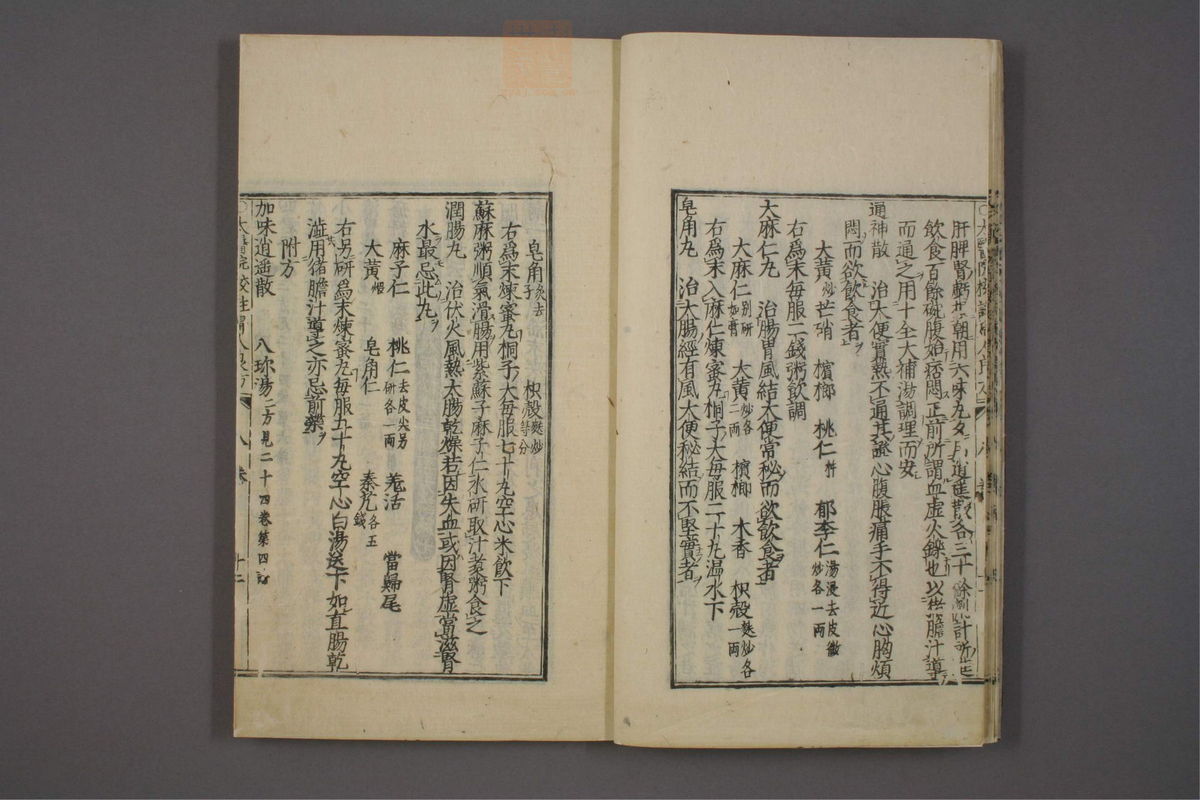 肝脾腎虧損朝用六味丸夕用逍遥散各三十餘劑計所進
飲食百餘碗腹始痞悶正前所謂血虛火鑠也以猪膽汁導
而通之用十全大補湯調理而安
通神散 治大便實熱不通其證心腹脹痛手不得近心胸煩
悶而欲飲食者
大黃炒 芒硝 檳榔 桃仁 郁李仁湯浸去皮微炒各一兩
右爲末每服二錢粥飲調
大麻仁丸 治腸胃風結大便常秘而欲飲食者
大麻仁别研如膏 大黃炒各二兩 檳榔 木香 枳殼麩炒各一兩
右爲末入麻仁煉蜜丸桐子大每服二十丸溫水下
皂角丸 治大腸經有風大便秘結而不堅實者
皂角子炙去 枳殼麩炒等分
右爲末煉蜜丸桐子大每服七十丸空心米飲下
蘇麻粥順氣滑腸用紫蘇子麻子仁水研取汁煮粥食之
潤腸丸 治伏火風熱大腸乾燥若因失血或因腎虛當滋腎
水最忌此丸
麻子仁 桃仁去皮尖另研各一兩 羌活 當歸尾
大黃煨 皂角仁 秦艽各五錢
右另研爲末煉蜜丸每服五十丸空心白湯送下如直腸乾
澁用猪膽汁導之亦忌前藥
附方
加味逍遥散 八珍湯二方見二十四卷第四
八卷 十二